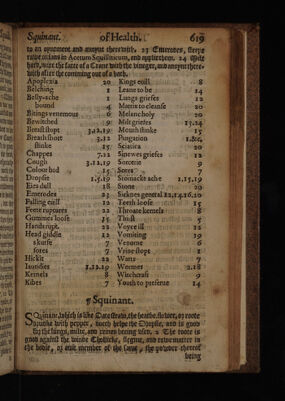 Squinant. of Health. 619
to an oyntment and annoynt therewith. 23 Emerodes,
raw onions in Acetum Squilliticum, and applie them. 24
with the fatte of a Crane with the vineger, and annoynt there-
with after the comming out of a bath.
Apoplexia 20
Belching 1
Belly-ache 1
bound 4
Bitings venemous 6
Bewitched 9
Breast stopt 3.12.19
Breath short 3.12
stinke 15
Chappes 7.22
Cough 3.12.19
Colour bad 15
Dropsie 1.5.19
Eies dull 18
Emerodes 23
Falling euill 12
Feete 22
Gummes loose 15
Hands rupt. 22
Head giddie 12
skurfe 7
sores 7
Hickit 22
Iaundies 1.12.19
Kernels 8
Kibes 7
Kings euill 8
Leane to be 14
Lungs grieues 12
Matrix to cleanse 20
Melancholy 20
Milt grieues 13.24
Mouth stinke 15
Purgation 1.&c.
Sciatica 20
Sinewes grieues 12
Sorcerie 9
Sores 7
Stomacke ache 1.15.19
Stone 20
Sicknes general 12.14.16.20
Teeth loose 15
Throate kernels 8
Thirst 5
Voyce ill 12
Vomiting 19
Venome 6
Vrine stopt 1
Warts 7
Wormes 2.18
Witchcraft 9
Youth to preserue 14
¶ Squinant.
Squinant, which is like the heathe, flower, or roote
drunke with pepper, much helpe the Dropsie, and is good
for the lungs, milte, and reines being uset. 2 The roote is
good against the winde Chollicke, flegme, and raw matter in
the bodie, or anie member of the same, the powder thereof
being